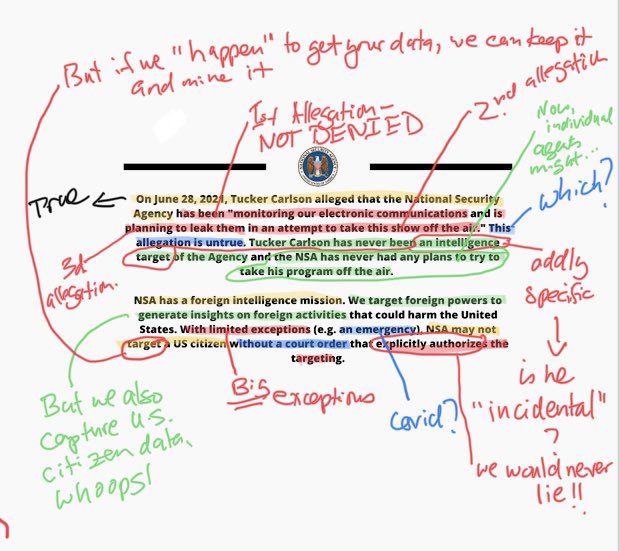 But if we "happen" to get your data, we can keep it
and mine it
1st Allegation -
NOT DENIED
2nd allegation
Now,
individual
agents
might...
which?
True
On June 28, 2021, Tucker Carlson alleged that the National Security
Agency has been "monitoring our electronic communications and is
planning to leak them in an attempt to take this show off the air." This
allegation is untrue. Tucker Carlson has never been an intelligence
target of the Agency and the NSA has never had any plans to try to
take his program off the air.
3d
allegation.
oddly
specific
NSA has a foreign intelligence mission. We target foreign powers to
generate insights on foreign activities that could harm the United
States. With limited exceptions (e.g. an emergency), NSA may not
target a US citizen without a court order that explicitly authorizes the
targeting.
But we also
capture U.S.
citizen data,
whoops!
BIG exceptions
Covid?
is he
"incidental"
?
we would never
lie!!